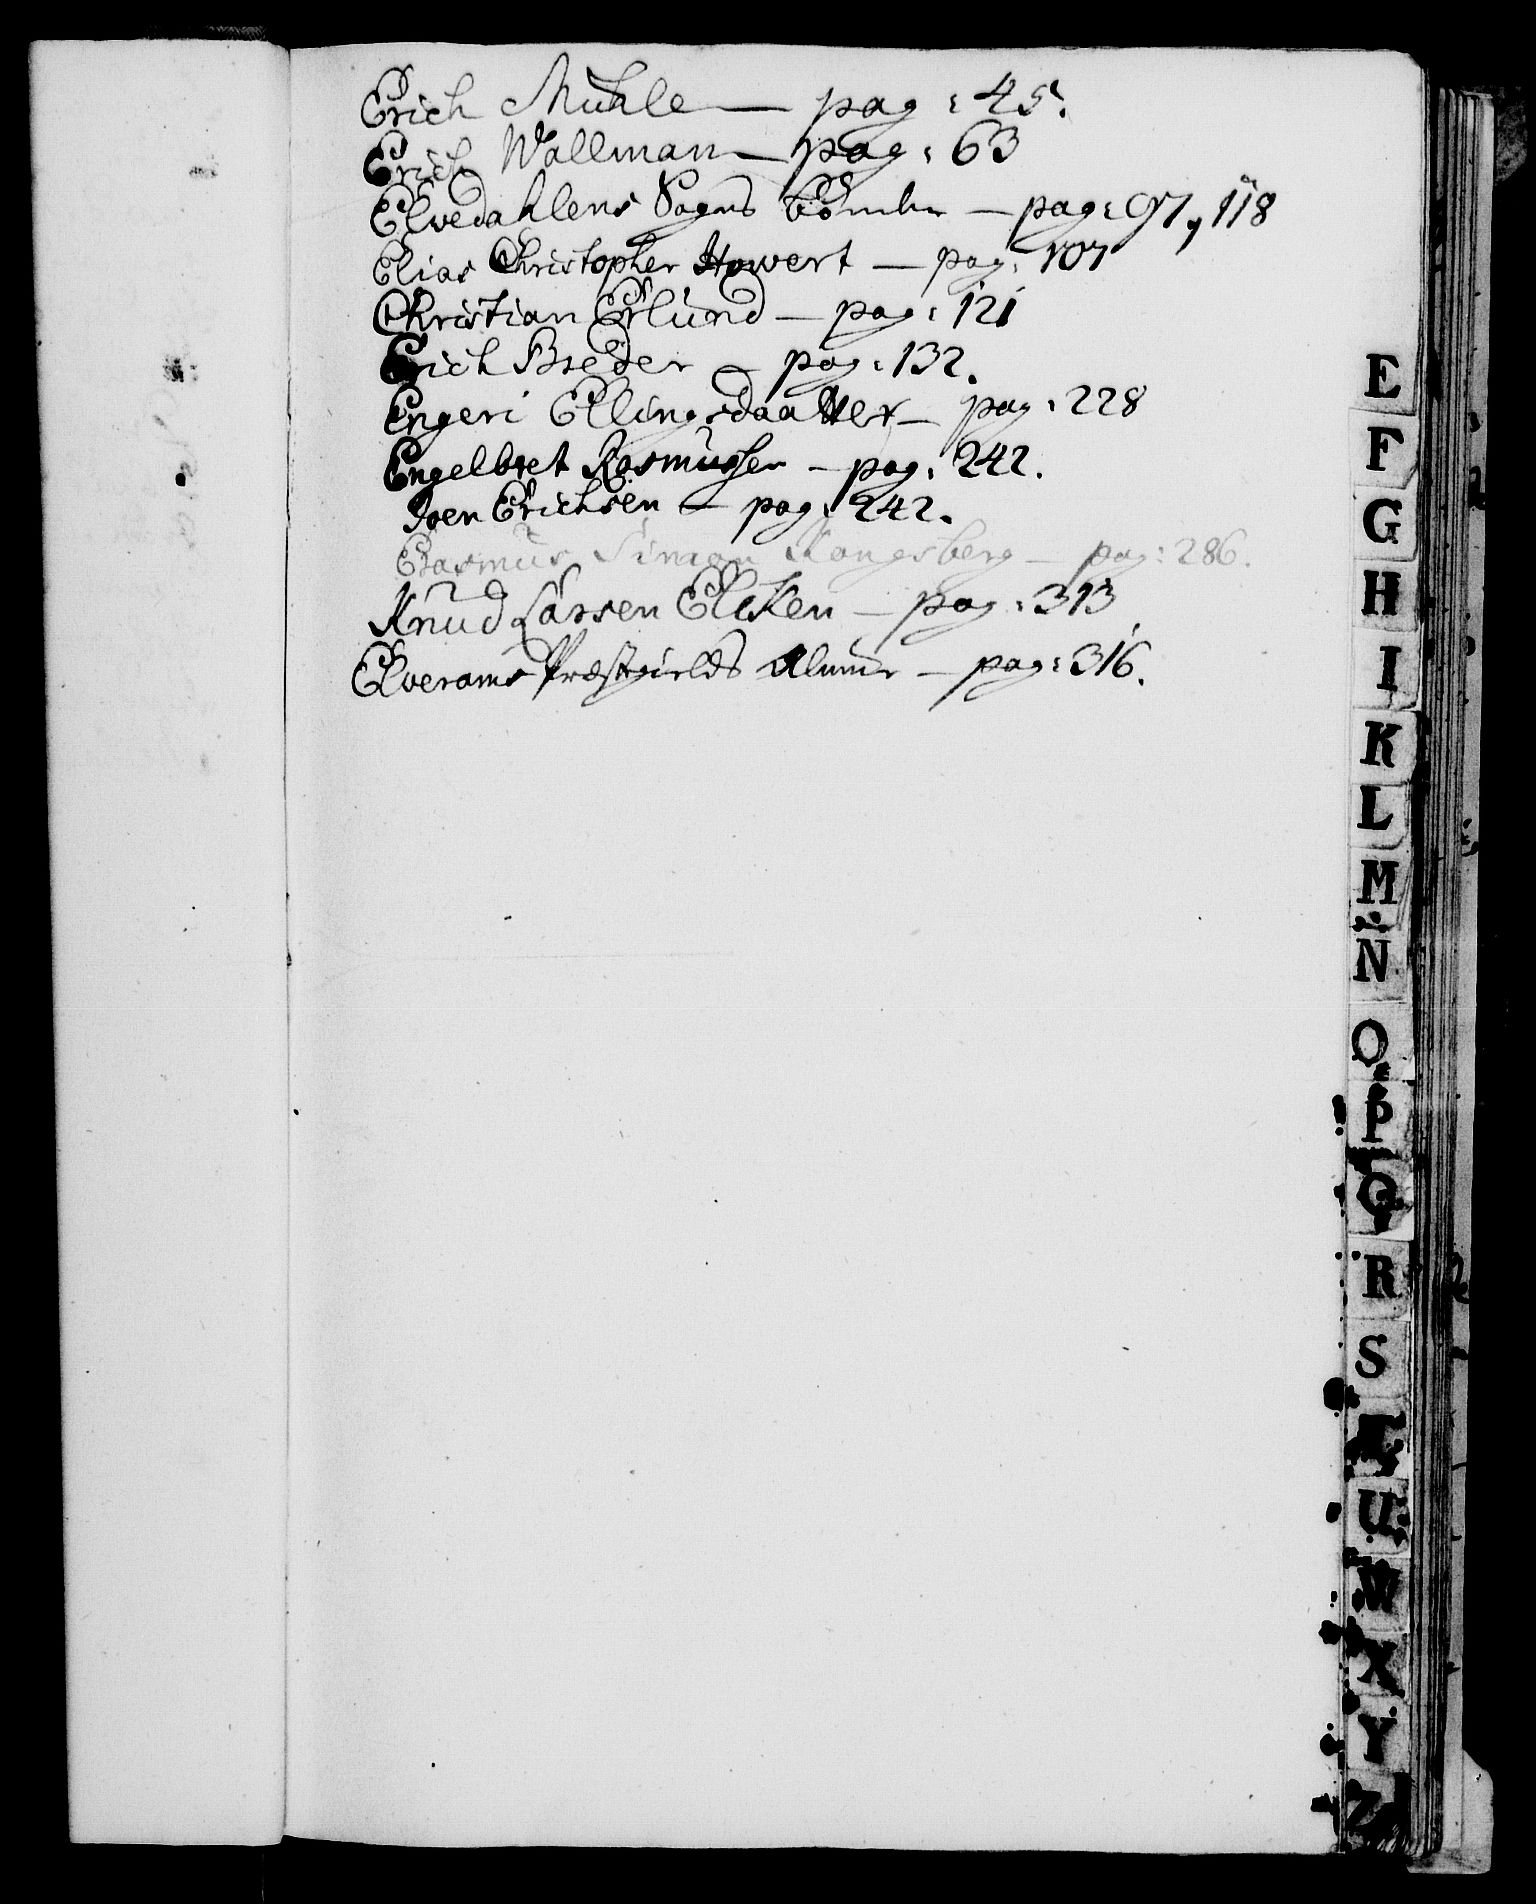 Erich Mühle — pag: 45.
Erich Wallman — pag: 63
Elvedahlens Sogns — pag: 97, 118
Elias Christopher Howert — pag: 107
Christian Erlund — pag: 121
Erich Breder — pag: 132.
Engeri Ellingsdaatter — pag: 228
Engelbret Rasmussen — pag: 242.
Joen Erichsen — pag: 242.
Erasmus Simon Kongsberg — pag: 286.
Knud Larsen Elcken — pag: 313
Elveroms Præstgields Almue — pag: 316.
E
F
G
H
I
K
L
M
N
O
P
Q
R
S
T
U
W
X
Y
Z